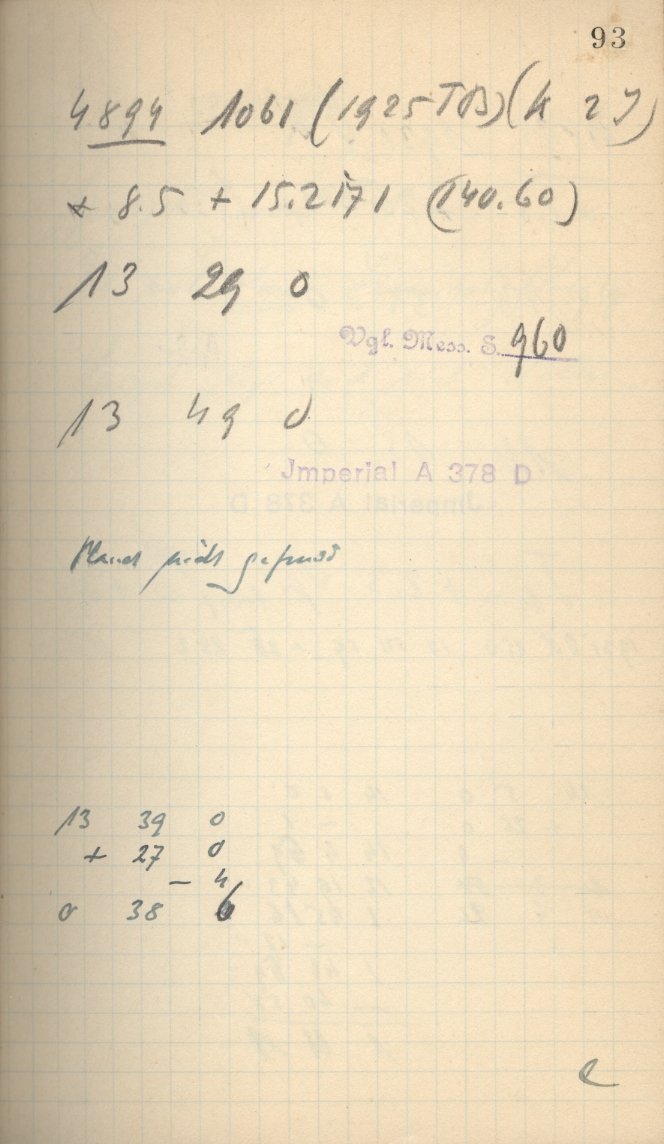 93
4894 1061 (1925 TB) (K 2 J)
+ 8.5 + 15.2171 (140.60)
13 29 0
Vgl. Mess. S. 960
13 49 0
Jmperial A 378 D
Planet nicht gefunden
13 39 0
+ 27 0
- 4
0 38 6